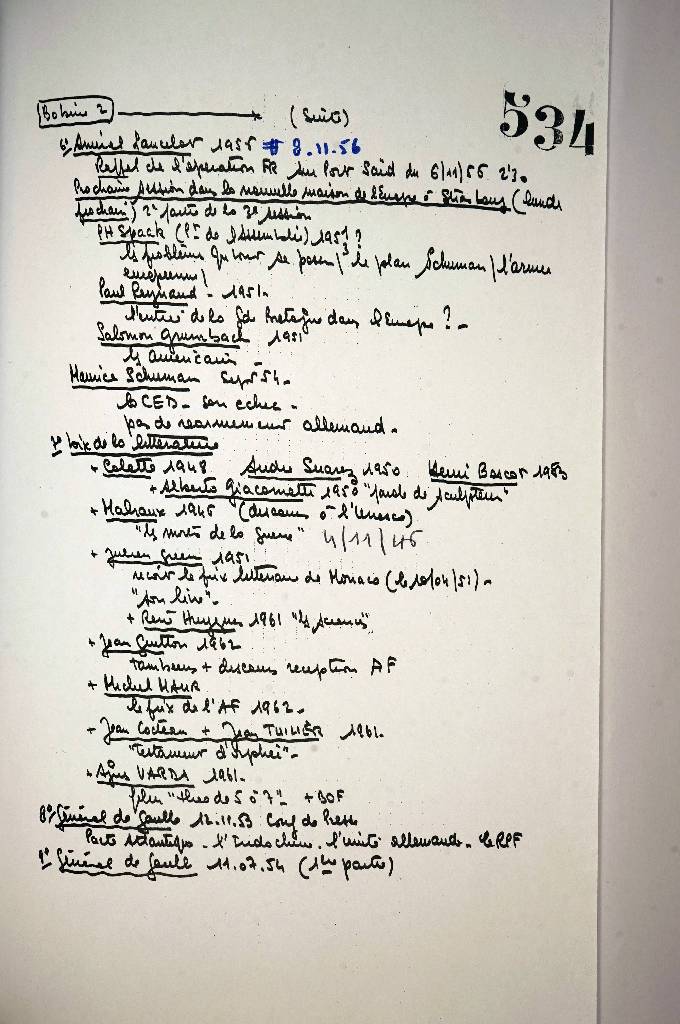 Bobine 2 (Suite)
534
6°/ Amiral Lancelot 1955 # 8.11.56
Rappel de l'opération FR sur Port Saïd du 6/11/56 2'30
Prochaine session dans la nouvelle maison de l'Europe à Strasbourg (lundi
prochain) 2e partie de la 3e session
PH Spaak (Pt de l'Assemblée) 1951 ?
les problèmes qui se posent / le plan Schuman / l'armée
européenne /
Paul Reynaud - 1951.
l'entrée de la Gde Bretagne dans l'Europe ? -
Salomon Grumbach 1951
les américains
Maurice Schuman Sept 54 -
la CED - son echec -
pas de rearmement allemand -
7° Voix de la litterature
+ Colette 1948 André Suarez 1950 Henri Boscot 1953
+ Alberto Giacometti 1950 "parole de sculpteur"
+ Malraux 1946 (discours à l'Unesco)
"les morts de la guerre" 4/11/46
+ Julien Green 1951
reçoit le prix litteraire de Monaco (le 10/04/51) -
"son livre" -
+ René Huyghe 1961
+ Jean Guitton 1962
tambours + discours reception AF
+ Michel MAUR
le prix de l'AF 1962 -
+ Jean Cocteau + Jean THUILIER 1961.
"Testament d'Orphée" -
+ Agnès VARDA 1961 -
film "Cleo de 5 à 7" + BOF
8°/ Général de Gaulle 12.11.53 Conf de Presse
Pacte Atlantique - l'Indochine. l'unité allemande - le RPF
9° Général de Gaulle 11.07.54 (1ère partie)